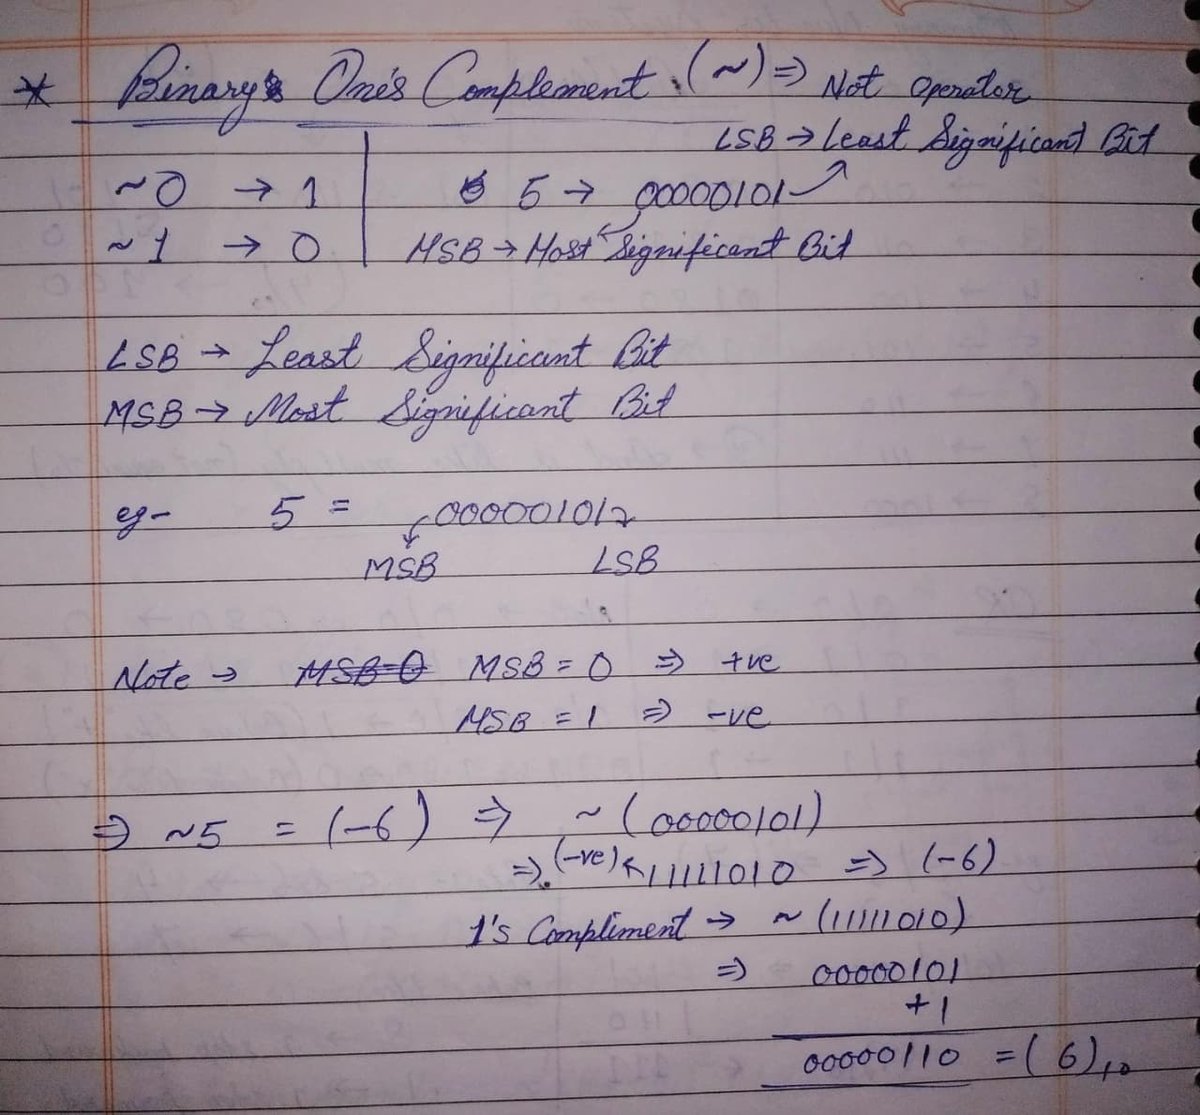 * Binary One's Complement. (~) => Not Operator
LSB → Least Significant Bit
~0 → 1
5 → 00000101
~1 → 0
MSB → Most Significant Bit
LSB → Least Significant Bit
MSB → Most Significant Bit
eg- 5 = 00000101
MSB LSB
Note → MSB=0 MSB = 0 => +ve
MSB = 1 => -ve
=> ~5 = (-6) => ~(00000101)
=> (-ve) ← 11111010 => (-6)
1's Compliment → ~(11111010)
=> 00000101
+1
00000110 = (6)10